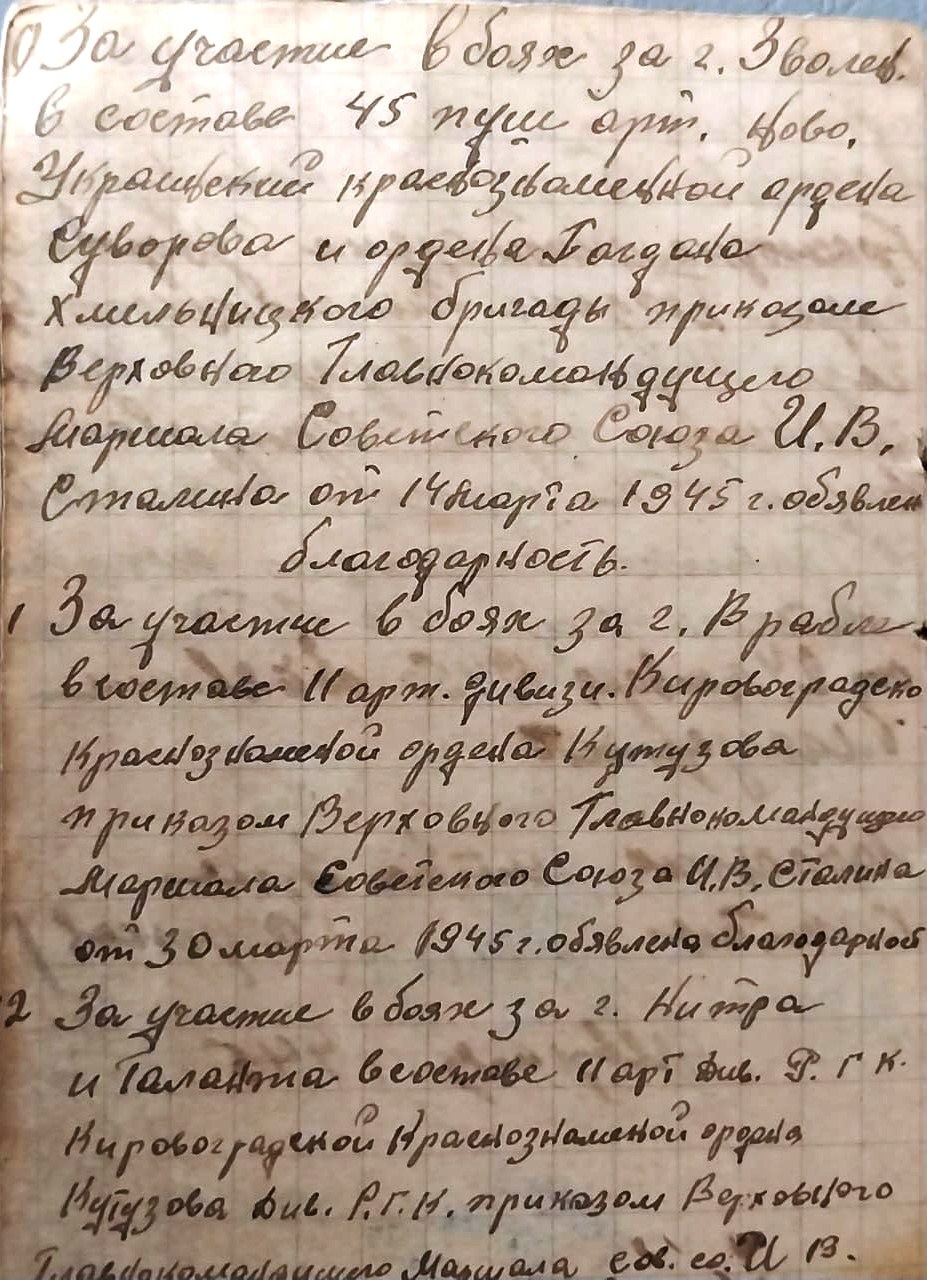 0) За участие в боях за г. Зволен.
в составе 45 пуш арт. Ново,
Украинский краснознаменной ордена
Суворова и ордена Богдана
Хмельницкого бригады приказом
Верховного Главнокомандующего
Маршала Советского Союза И. В.
Сталина от 14 марта 1945 г. обявлен
благодарность.
1 За участие в боях за г. Врабле
в составе 11 арт. дивизи. Кировоградско
Краснознаменой ордена Кутузова
приказом Верховного Главнокомандующего
Маршала Советского Союза И.В. Сталина
от 30 марта 1945 г. обявлена благодарност
2 За участие в боях за г. Нитра
и Галанта в составе 11 арт див. Р. Г К.
Кировоградской Краснознаменой ордена
Кутузова див. Р.Г.К. приказом Верховного
Главнокомандующего Маршала Сов. со. И В.